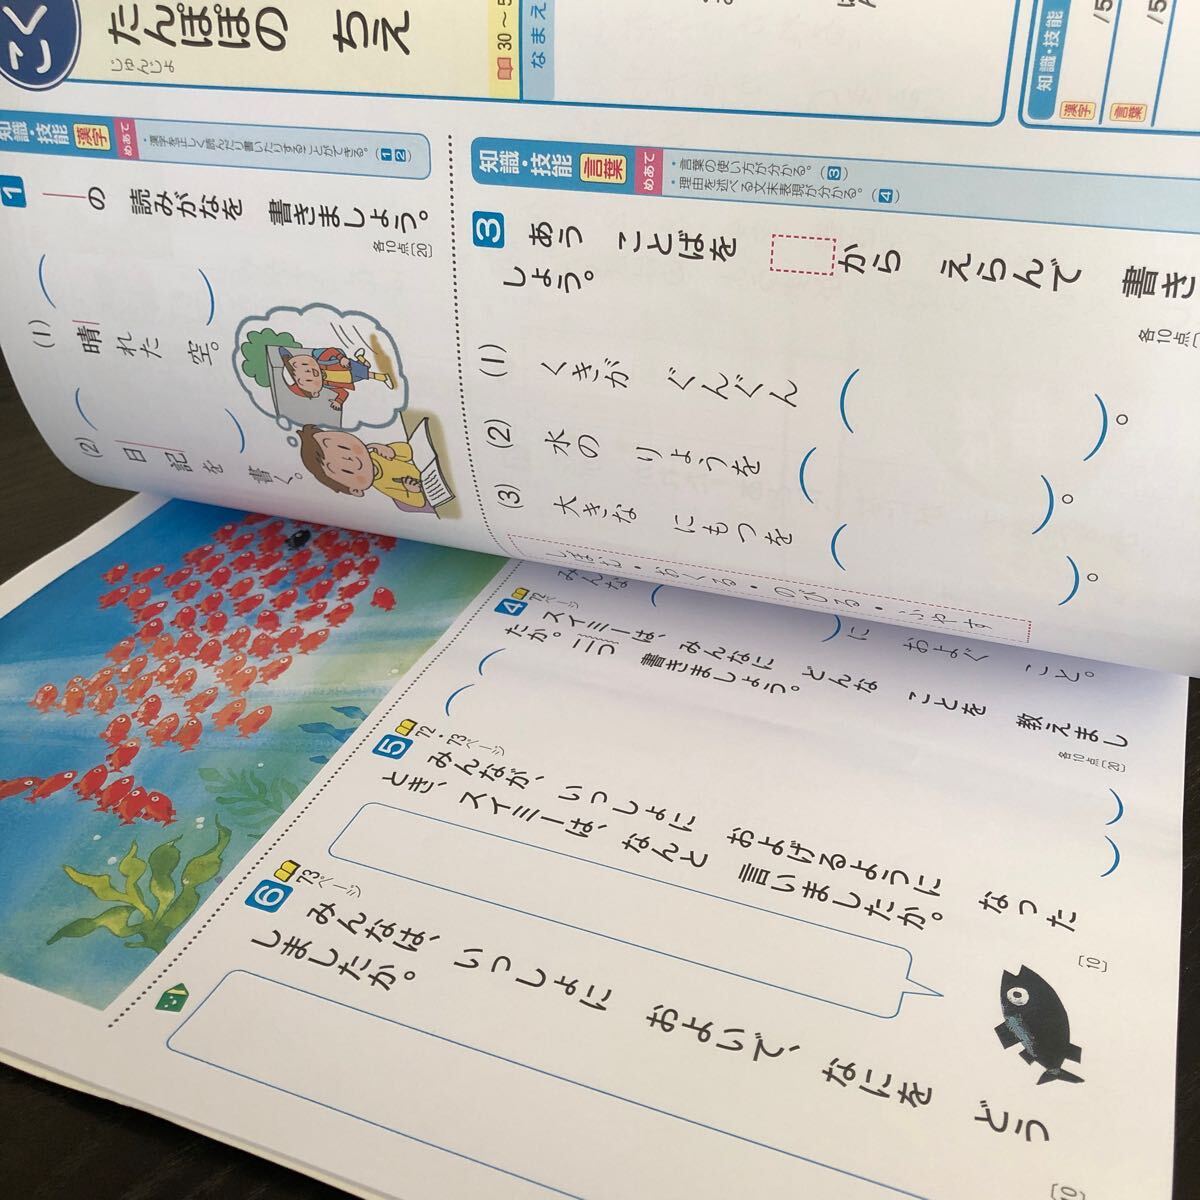 こく
たんぽぽの ちえ
じゅんじょ
30～5
なまえ
知識・技能
漢字
/5
言葉
/5
知識・技能
漢字
めあて
・漢字を正しく読んだり書いたりすることができる。(1 2)
1
の 読みがなを 書きましょう。
各10点〔20〕
(1)
晴れた 空。
(2)
日記を 書く。
知識・技能
言葉
めあて
・言葉の使い方が分かる。(3)
・理由を述べる文末表現が分かる。(4)
3
あう ことばを から えらんで 書き
しょう。
各10点〔
(1) くきが ぐんぐん ( )。
(2) 水の りょうを ( )。
(3) 大きな にもつを ( )。
しぼむ・おくる・のびる・ふやす
みんな ( )に およぐ こと。
4
72ページ
スイミーは、みんなに どんな ことを 教えまし
たか。二つ 書きましょう。
各10点〔20〕
5
72・73ページ
みんなが、いっしょに およげるように なった
とき、スイミーは、なんと 言いましたか。
〔10〕
6
73ページ
みんなは、いっしょに およいで、なにを どう
しましたか。
〔10〕